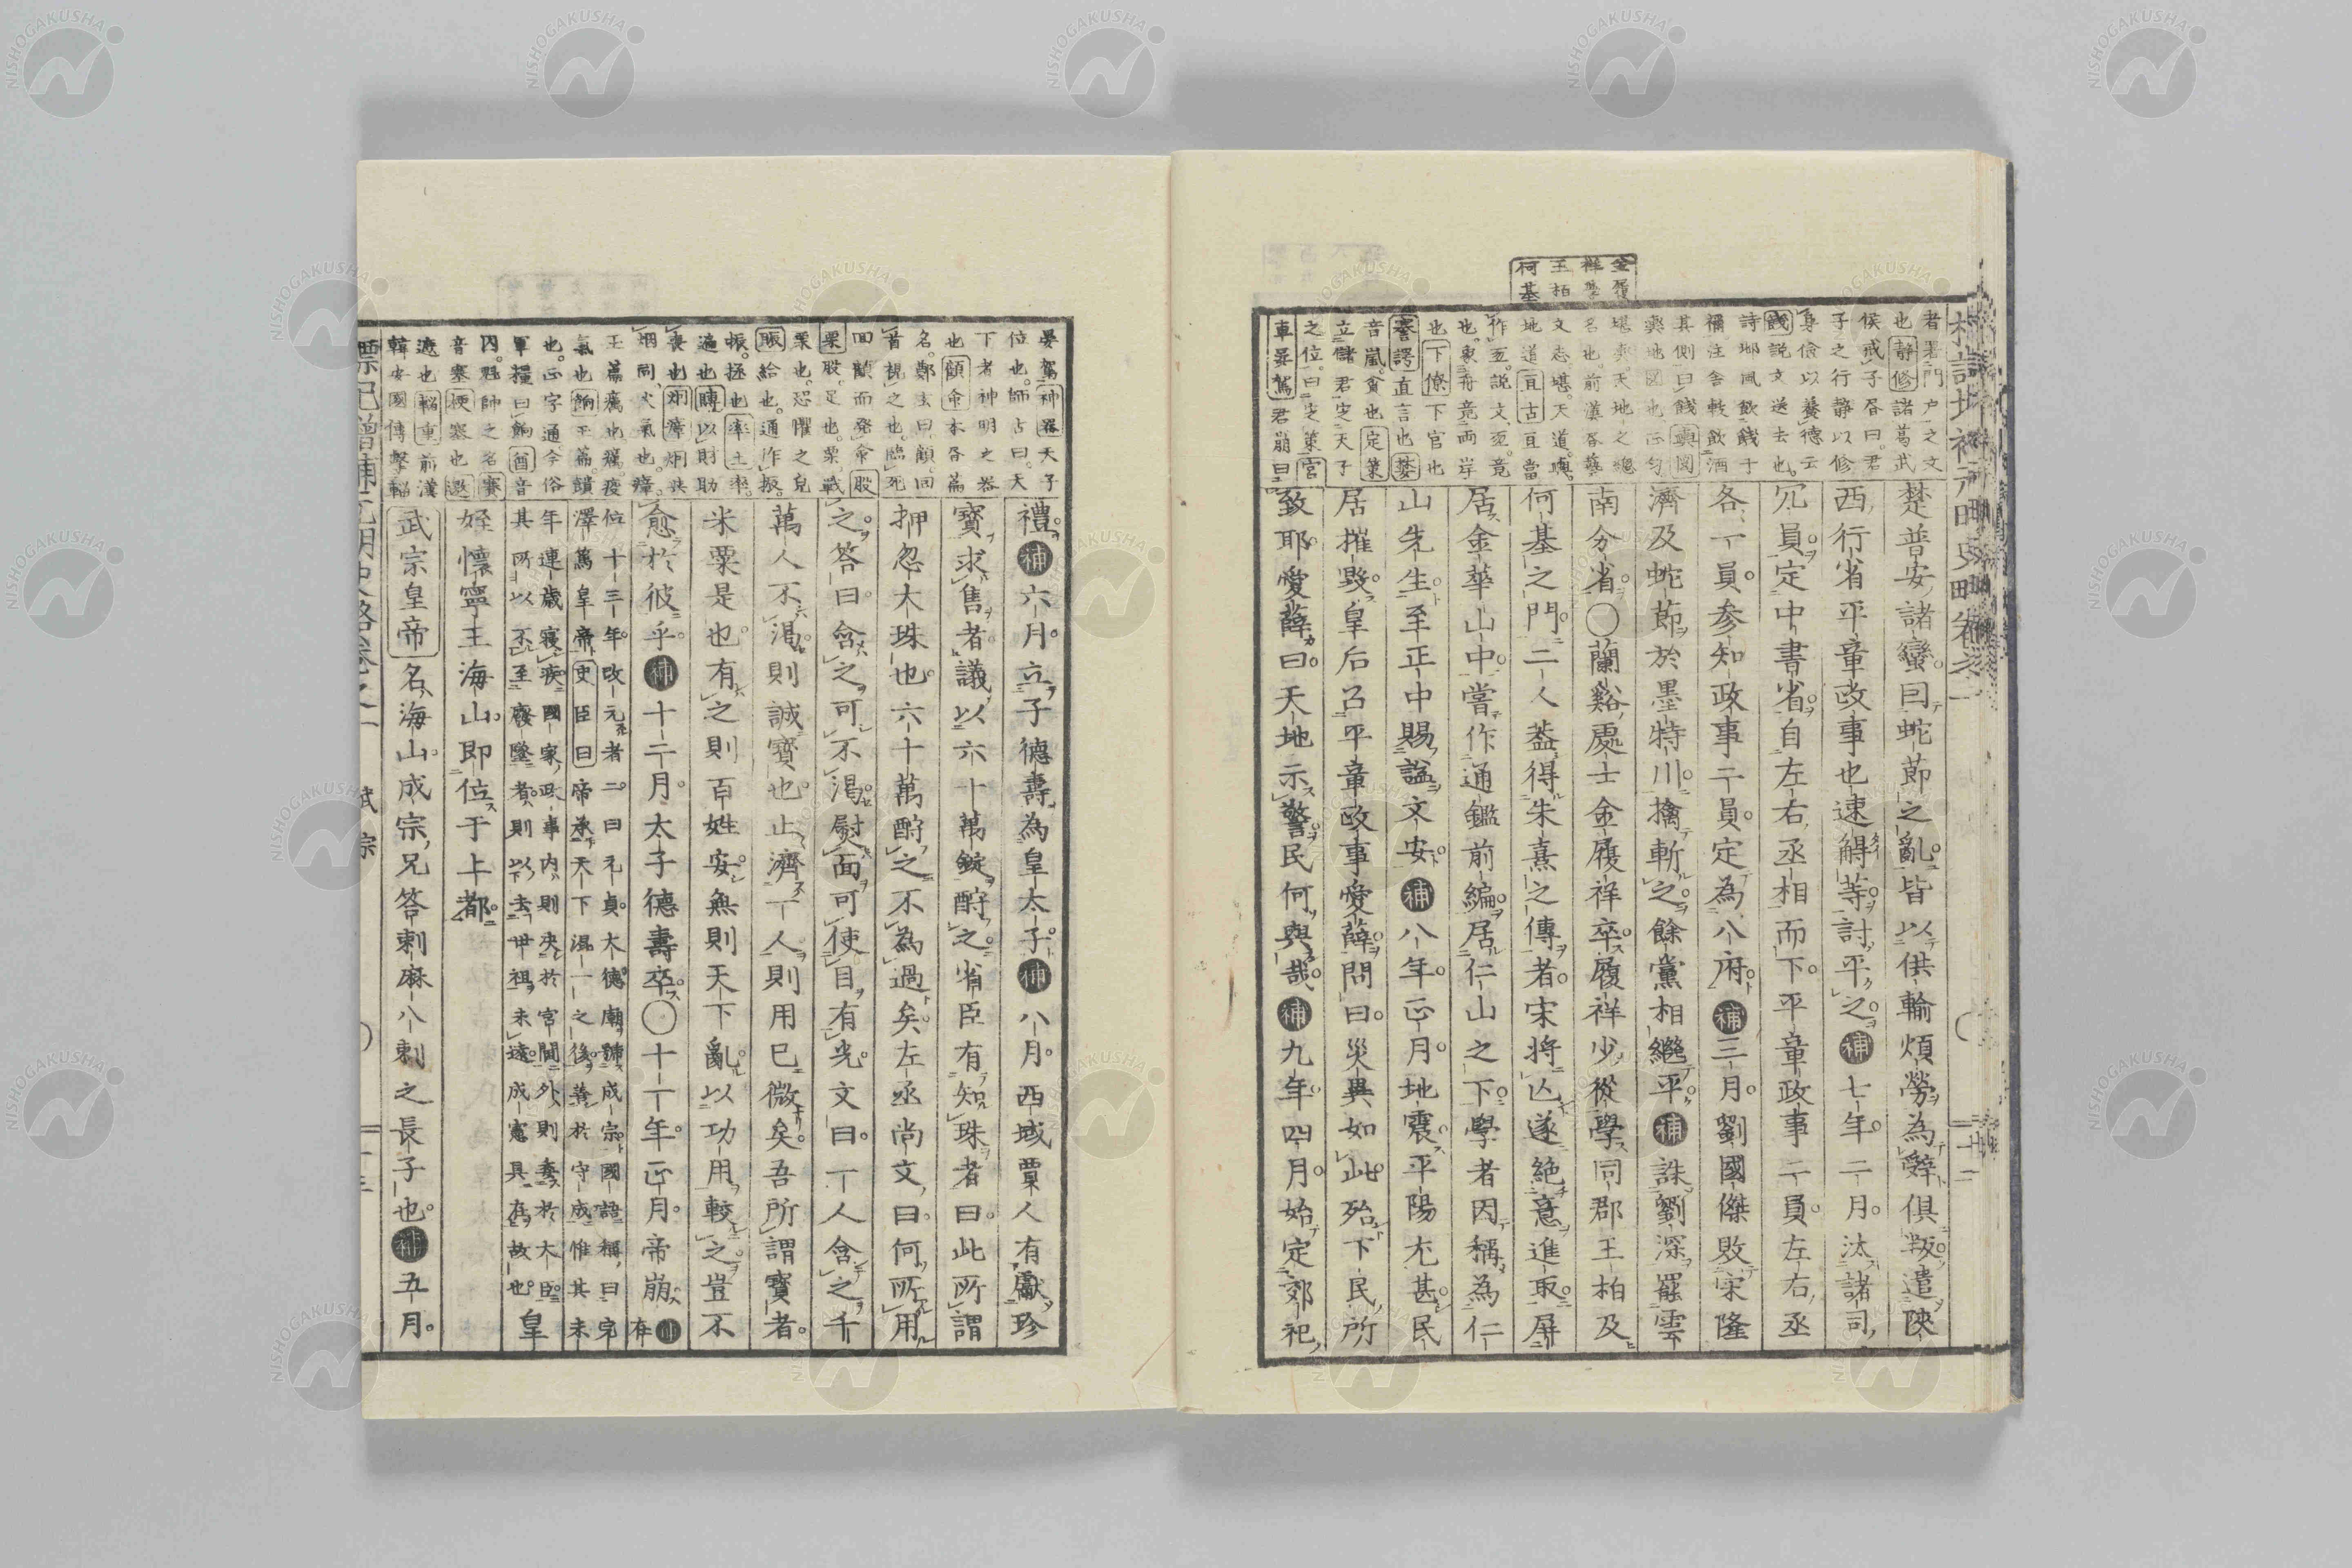 金履
祥
王柏
何基
者署門戶之文
也靜修諸葛武
侯戒子居曰君
子之行靜以修
身儉以養德云
餞說文送去也
詩邶風飲餞于
禰注舍軷飲酒
其側曰餞輿圖
輿地圖也正勻
堪輿天地之總
名也前漢藝
文志堪天道輿
地道亘古亘當
作亙說文亙竟
也東舟竟兩岸
也下僚下官也
謇諤直言也婪
音嵐貪也定策
立儲君定天子
之位曰定策宮
車晏駕君崩曰
楚普安諸蠻因蛇節之亂皆以供輸煩勞為辭俱叛遣陝
西行省平章政事也速䚟等討平之補七年二月汰諸司
冗員定中書省自左右丞相而下平章政事二員左右丞
各一員參知政事二員定為八府補三月劉國傑敗宋隆
濟及蛇節於墨特川擒斬之餘黨相繼平補誅劉深罷雲
南分省〇蘭谿處士金履祥卒履祥少從學同郡王柏及
何基之門二人蓋得朱熹之傳者宋將亾遂絕意進取屏
居金華山中嘗作通鑑前編居仁山之下學者因稱為仁
山先生至正中賜謚文安補八年正月地震平陽尤甚民
居摧毀皇后召平章政事愛薛問曰災異如此殆下民所
致耶愛薛曰天地示警民何與哉補九年四月始定郊祀
晏駕神器天子
位也師古曰天
下者神明之器
也顧命本書篇
名鄭玄曰顧回
首視之也臨死
回顧而發命股
栗股足也栗戰
栗也恐懼之兒
賑給也通作振
振拯也率土率
遍也賻以財助
喪也烟瘴烟與
烟同火氣也瘴
玉篇癘也癘疫
氣也餉玉篇饋
也正字通今俗
軍糧曰餉酋音
囚魁帥之名塞
音塞梗塞也邀
遮也輜重前漢
韓安國傳擊輜
禮補六月立子德壽為皇太子補八月西域賈人有獻珍
寶求售者議以六十萬錠酧之省臣有知珠者曰此所謂
押忽大珠也六十萬酧之不為過矣左丞尚文曰何所用
之答曰含之可不渴熨面可使目有光文曰一人含之千
萬人不渴則誠寶也止濟一人則用已微矣吾所謂寶者
米粟是也有之則百姓安無則天下亂以功用較之豈不
愈於彼乎補十二月太子德壽卒〇十一年正月帝崩補在
位十三年改元者二曰元貞大德廟號成宗國語稱曰完
澤篤皇帝史臣曰帝承天下混一之後善於守成惟其未
年連歲寢疾國家政事內則决於宮閫外則委於大臣
其所以不至廢墜者則以去世祖未遠成憲具在故也皇
姪懷寧王海山即位于上都
武宗皇帝名海山成宗兄答剌麻八剌之長子也補五月
標記增補元明史略卷之一
武宗